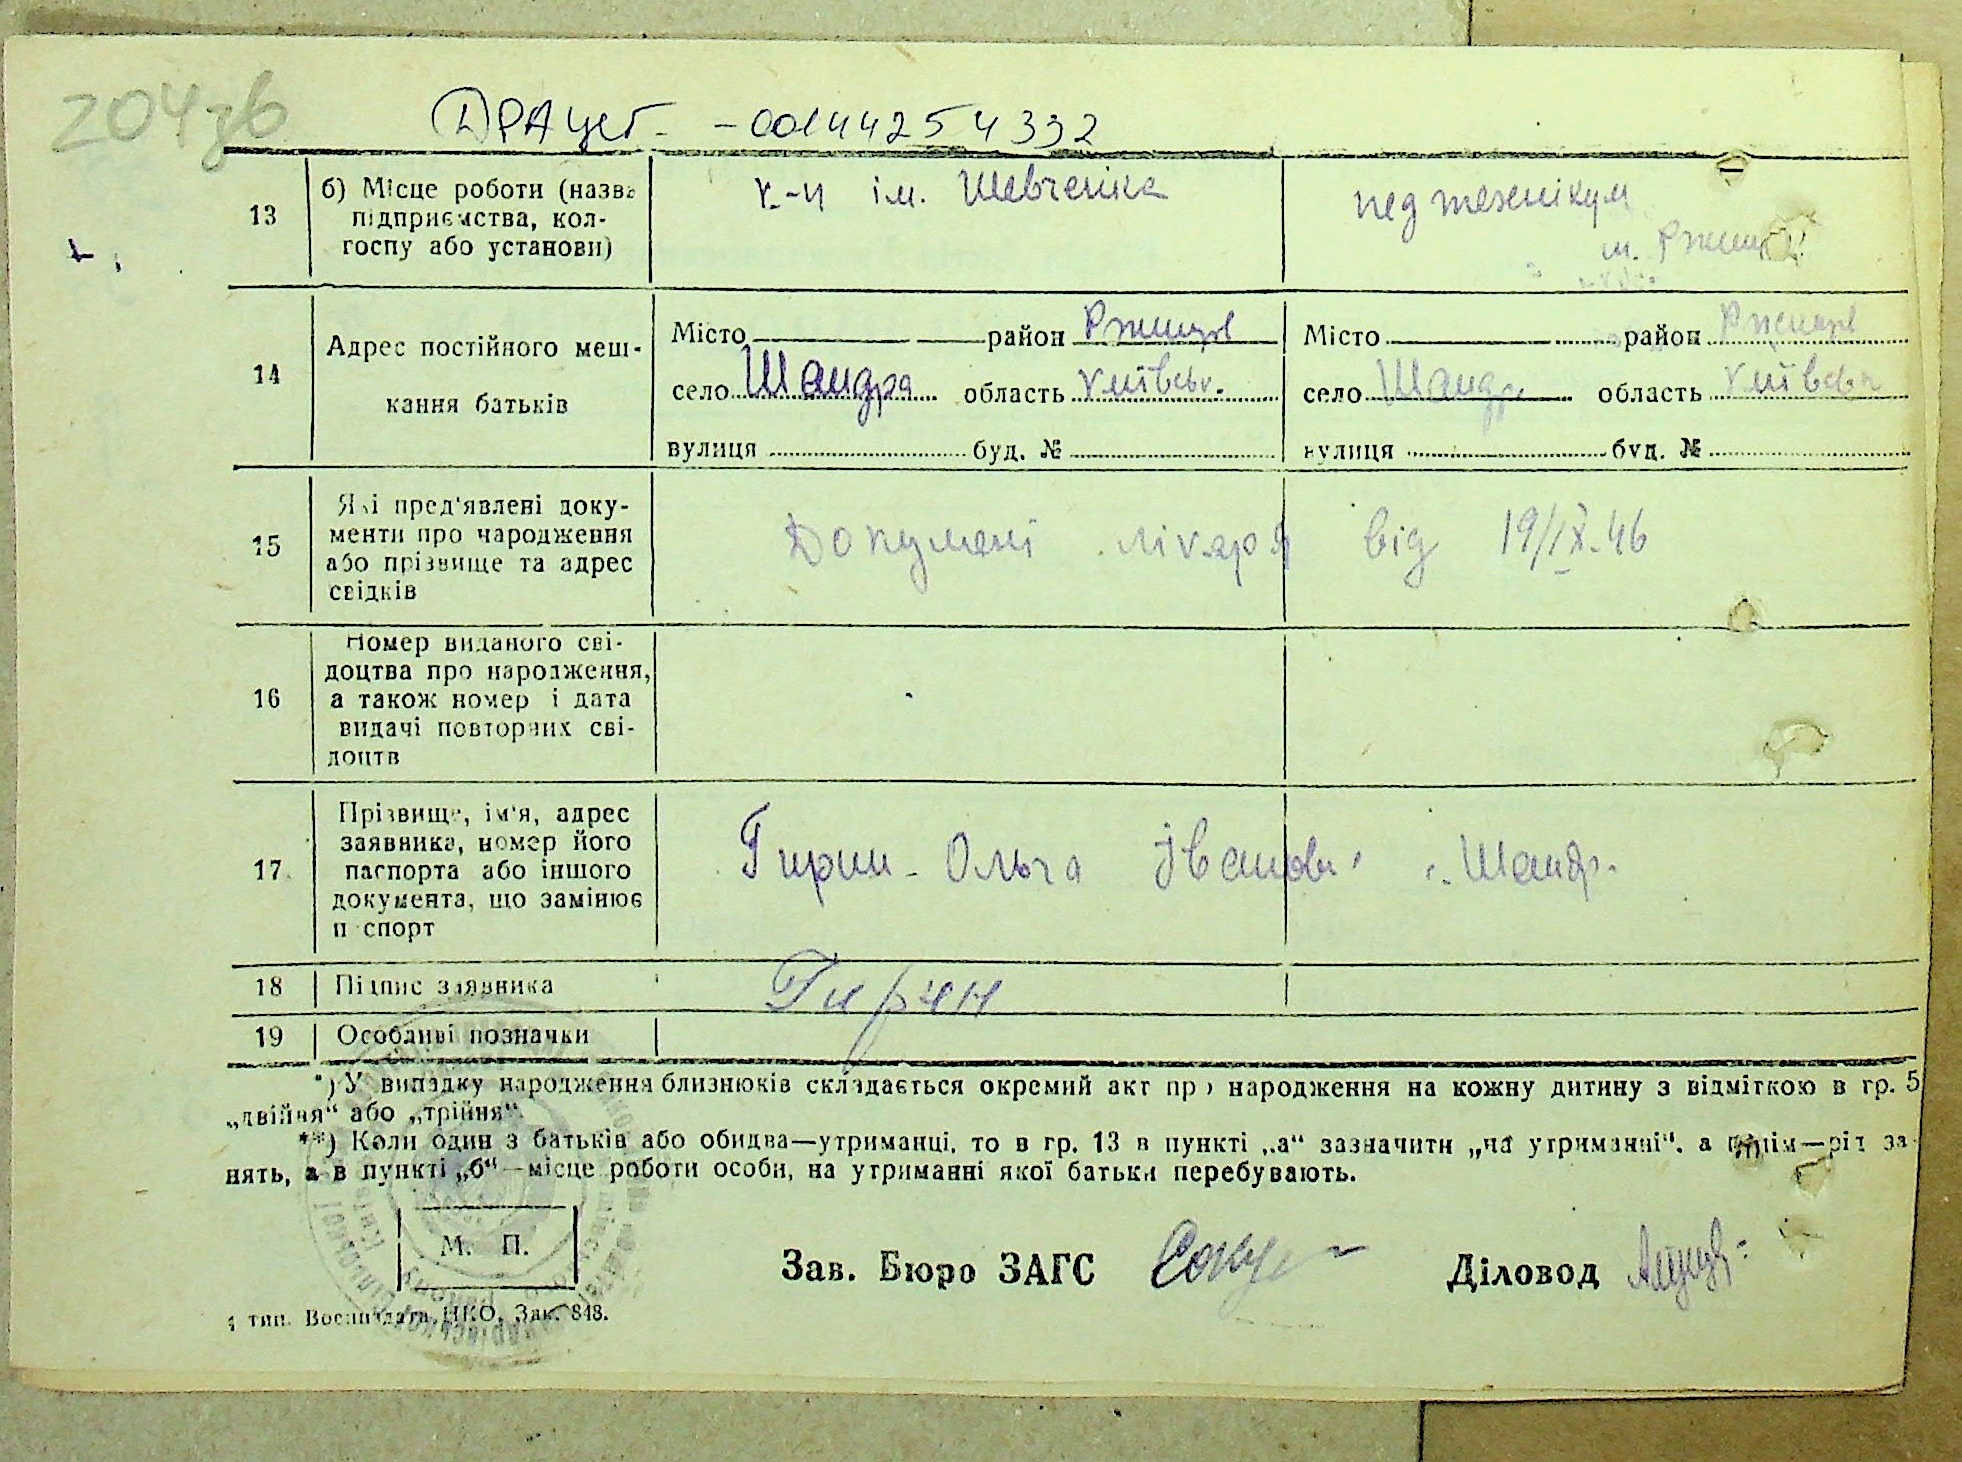 204зв
ДРАЦСГ - 00144254332
13 б) Місце роботи (назва підприємства, колгоспу або установи)
к-п ім. Шевченка
педтехнікум
м. Ржищів
14 Адрес постійного мешкання батьків
Місто район Ржищів
село Шандра область Київськ.
вулиця буд. №
Місто район Ржищів
село Шандр область Київськ
вулиця буд. №
15 Які пред'явлені документи про народження або прізвище та адрес свідків
Документ лікаря від 19/IX-46
16 Номер виданого свідоцтва про народження, а також номер і дата видачі повторних свідоцтв
17 Прізвище, ім'я, адрес заявника, номер його паспорта або іншого документа, що замінює п спорт
Гирин Ольга Іванов с. Шандр.
18 Підпис заявника
Гирин
19 Особливі позначки
*) У випадку народження близнюків складається окремий акт про народження на кожну дитину з відміткою в гр. 5
„двійня“ або „трійня“.
**) Коли один з батьків або обидва—утриманці, то в гр. 13 в пункті „а“ зазначити „на утриманні“, а потім—рід за-
нять, а в пункті „б“—місце роботи особи, на утриманні якої батьки перебувають.
М. П.
Зав. Бюро ЗАГС Діловод
тип. Воениздата НКО. Зак. 848.